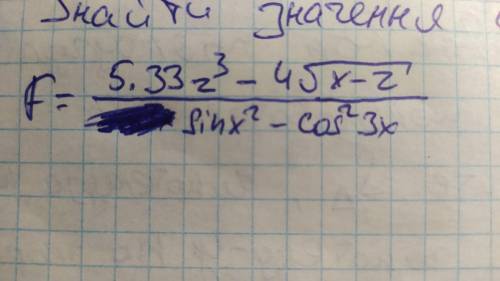 Знайти значення
F = (5.33z³ - 4√(x-z)) / (sinx² - cos²3x)